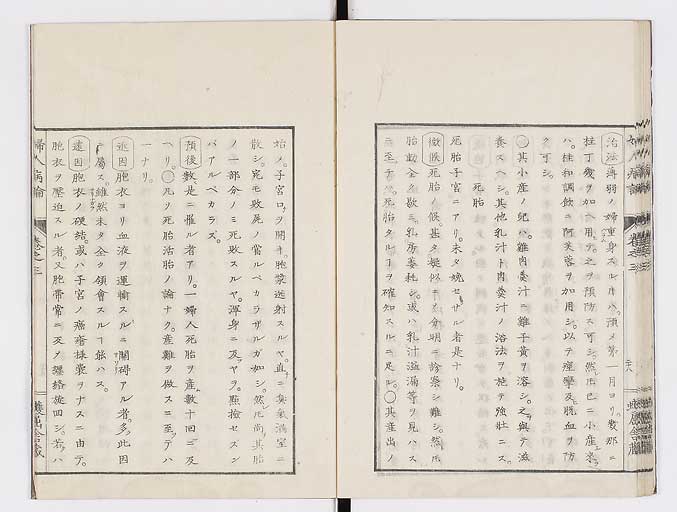 治法 薄弱ノ婦重身スル𪜈ハ預メ第一月ヨリ幾那ニ
桂丁幾ヲ加ヘ用テ之ヲ預防ス可シ然𪜈已ニ小産
ハ桂和調飲ニ阿芙蓉ヲ加用シ以テ痙攣及脱血ヲ防
ク可シ
其小産ノ兒ハ雞肉羹汁ニ雞子黄ヲ溶シ之ヲ與テ滋
養スヘシ其他乳汁ト肉羹汁ノ浴法ヲ施テ強壮ニス
死胎
死胎子宮ニアリ未タ娩セサル者是ナリ
徴候 死胎ノ候甚タ疑似ニ分明ニ診察シ難シ然𪜈
胎動全ク歇ミ乳房萎耗シ或ハ乳汁溢漏等ヲ見ハス
ニ至テハ死胎タルヿヲ確知スルニ足ル其産出ノ
婦人病論
巻之三
始ノ子宮口ヲ開キ胞漿迸射スルヤ直ニ臭氣満室ニ
散シ宛モ敗屍ノ當ルベカラザルガ如シ然𪜈尚其胎
ノ一部分ノミ死敗スルヤ渾身ニ及ヤヲ點檢セズン
バアルベカラズ
預後 數是ニ罹ル者アリ一婦人死胎ヲ産數十回ニ及
ヘリ死ヲ死胎活胎ノ論ナク産難ヲ做スニ至テハ
一ナリ
近因 胞衣ヨリ血液ヲ運輸スルニ關碍アル者多此因
ニ屬ス雖然未タ全ク領會スルヿ能ハス
遠因 胞衣ノ硬結或ハ子宮ノ癌瘡様業ヲナスニ由テ
胞衣ヲ壓迫スル者又胞帶常ニ反ヲ纏絡旋回シ若ハ
婦人病論
巻之三